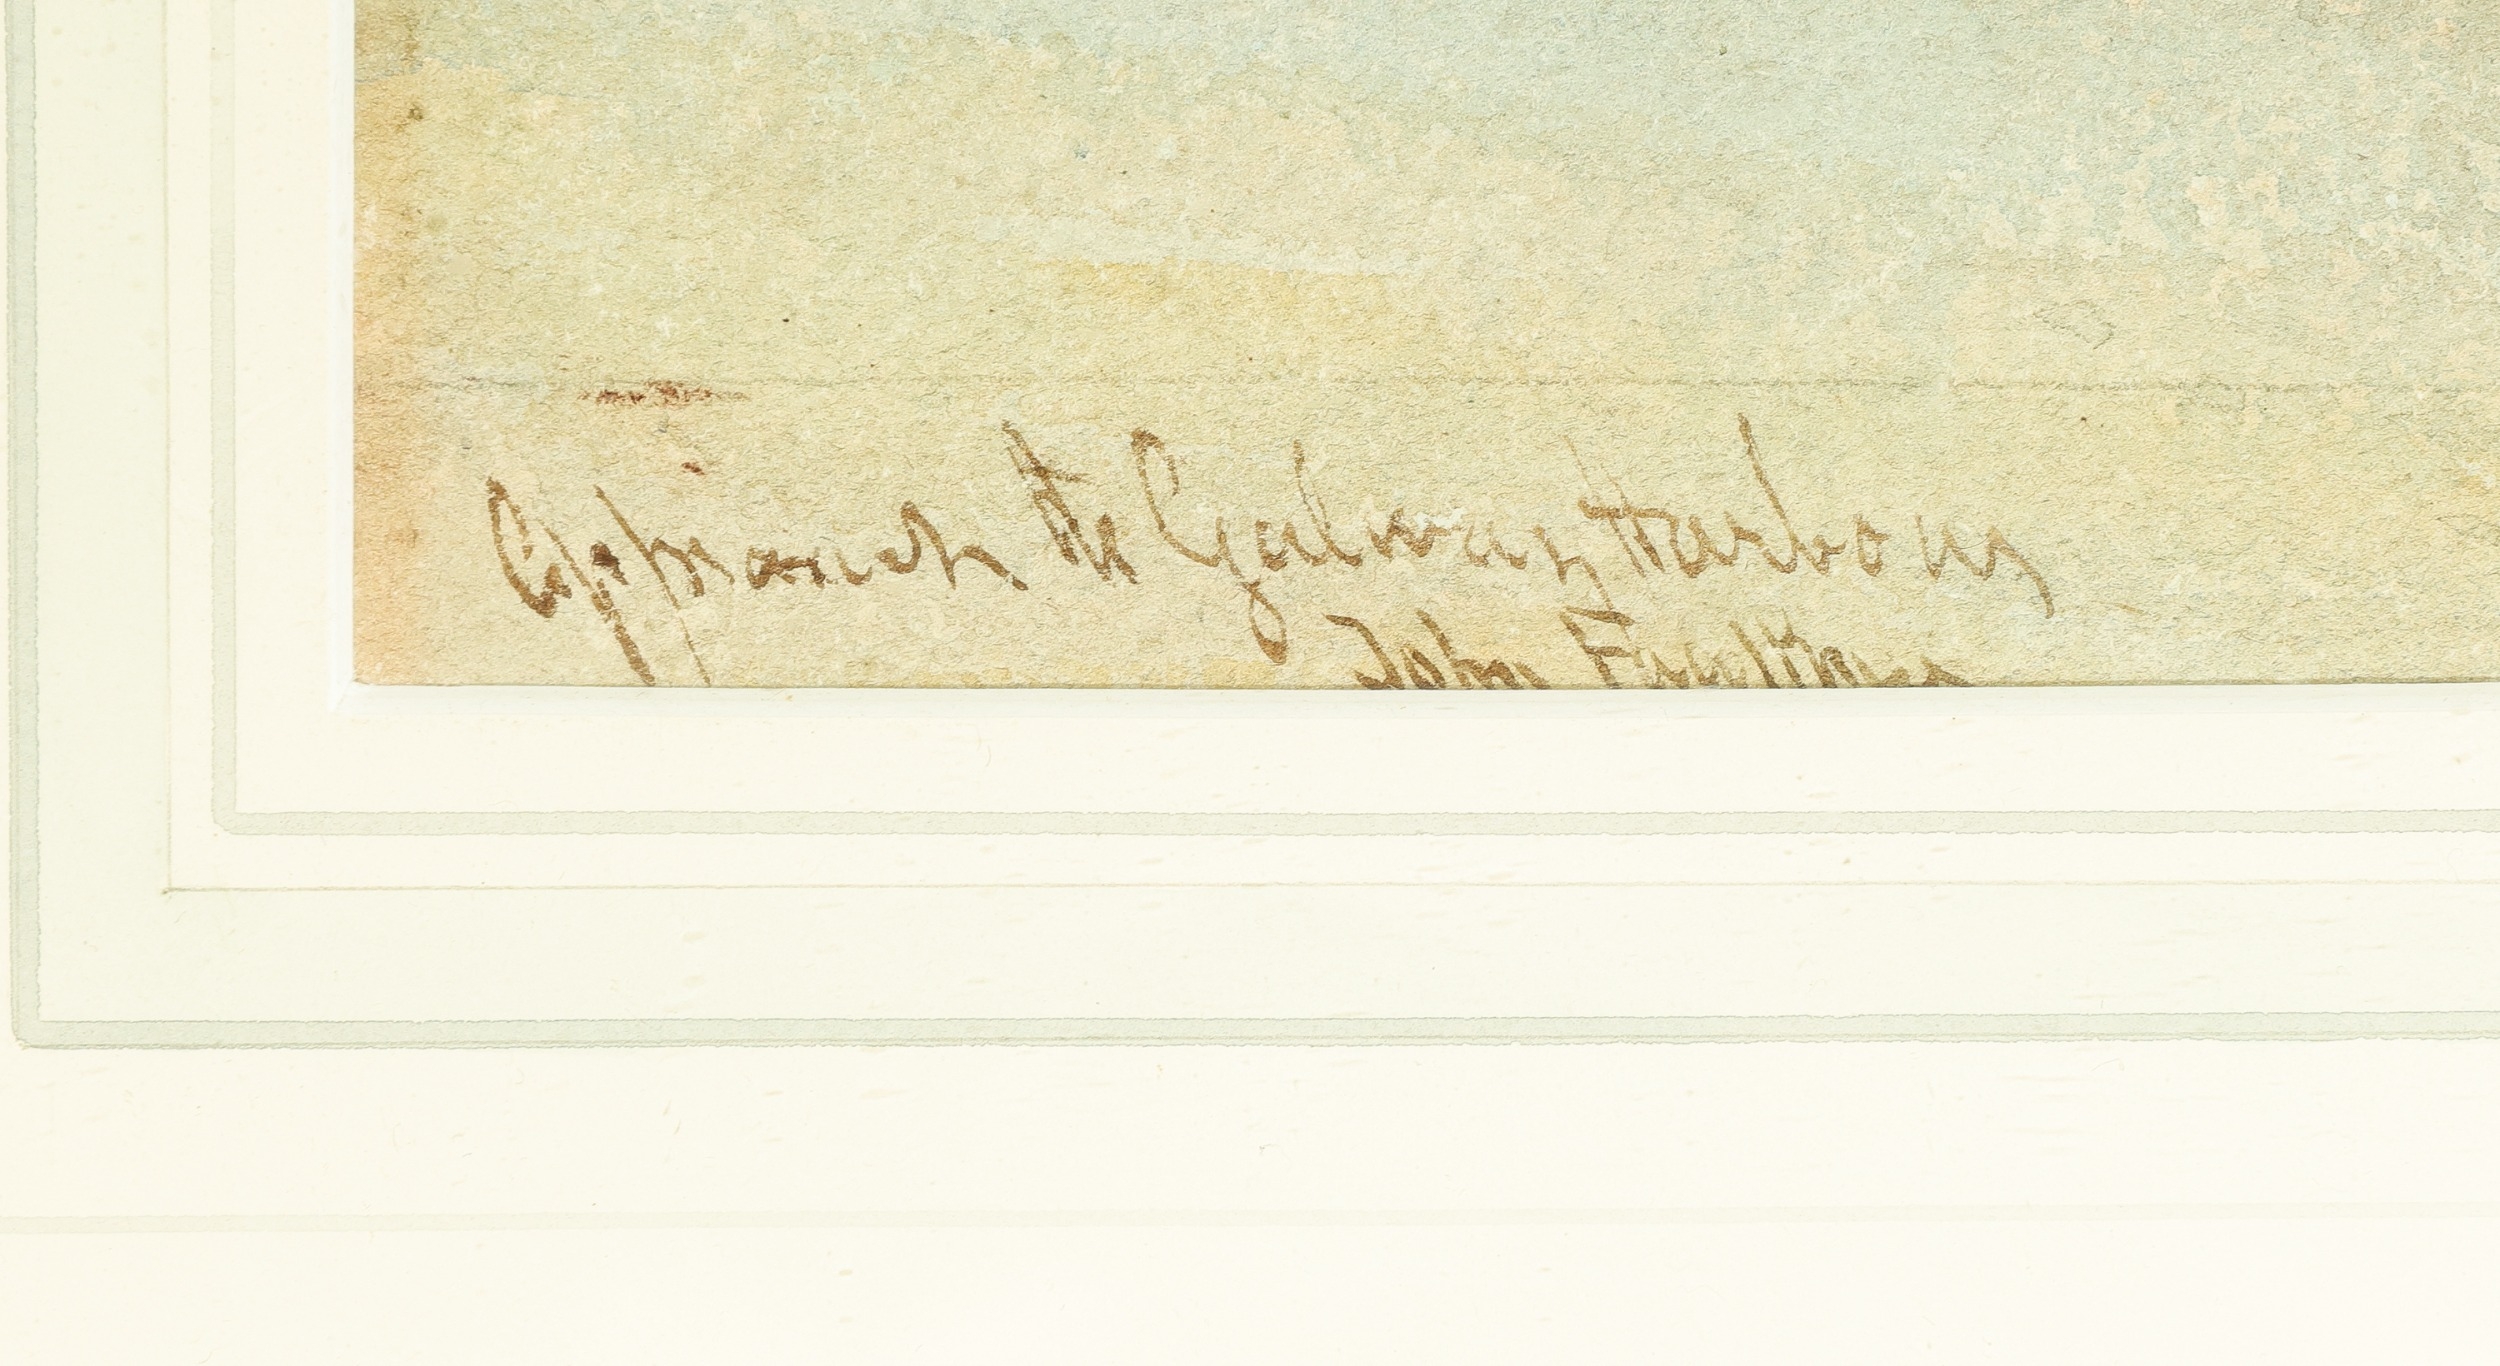 Approach to Galway Harbour
John Faulkner